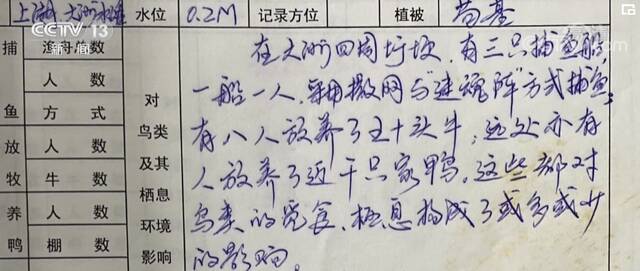 上湖 大沙 水位 0.2M 记录方位 植被 苔基
CCTV 13
新闻
捕鱼放牧养鸭
渔舟数
人数
方式
人数
牛数
人数
棚数
对鸟类及其栖息环境影响
在大沙四周圩坝,有三只捕鱼船,
一船一人,采用撒网与"迷魂阵"方式捕鱼;
有八人放养了五十头牛,远处亦有
人放养了近千只家鸭,这些都对
鸟类的觅食、栖息构成了或多或少
的影响。